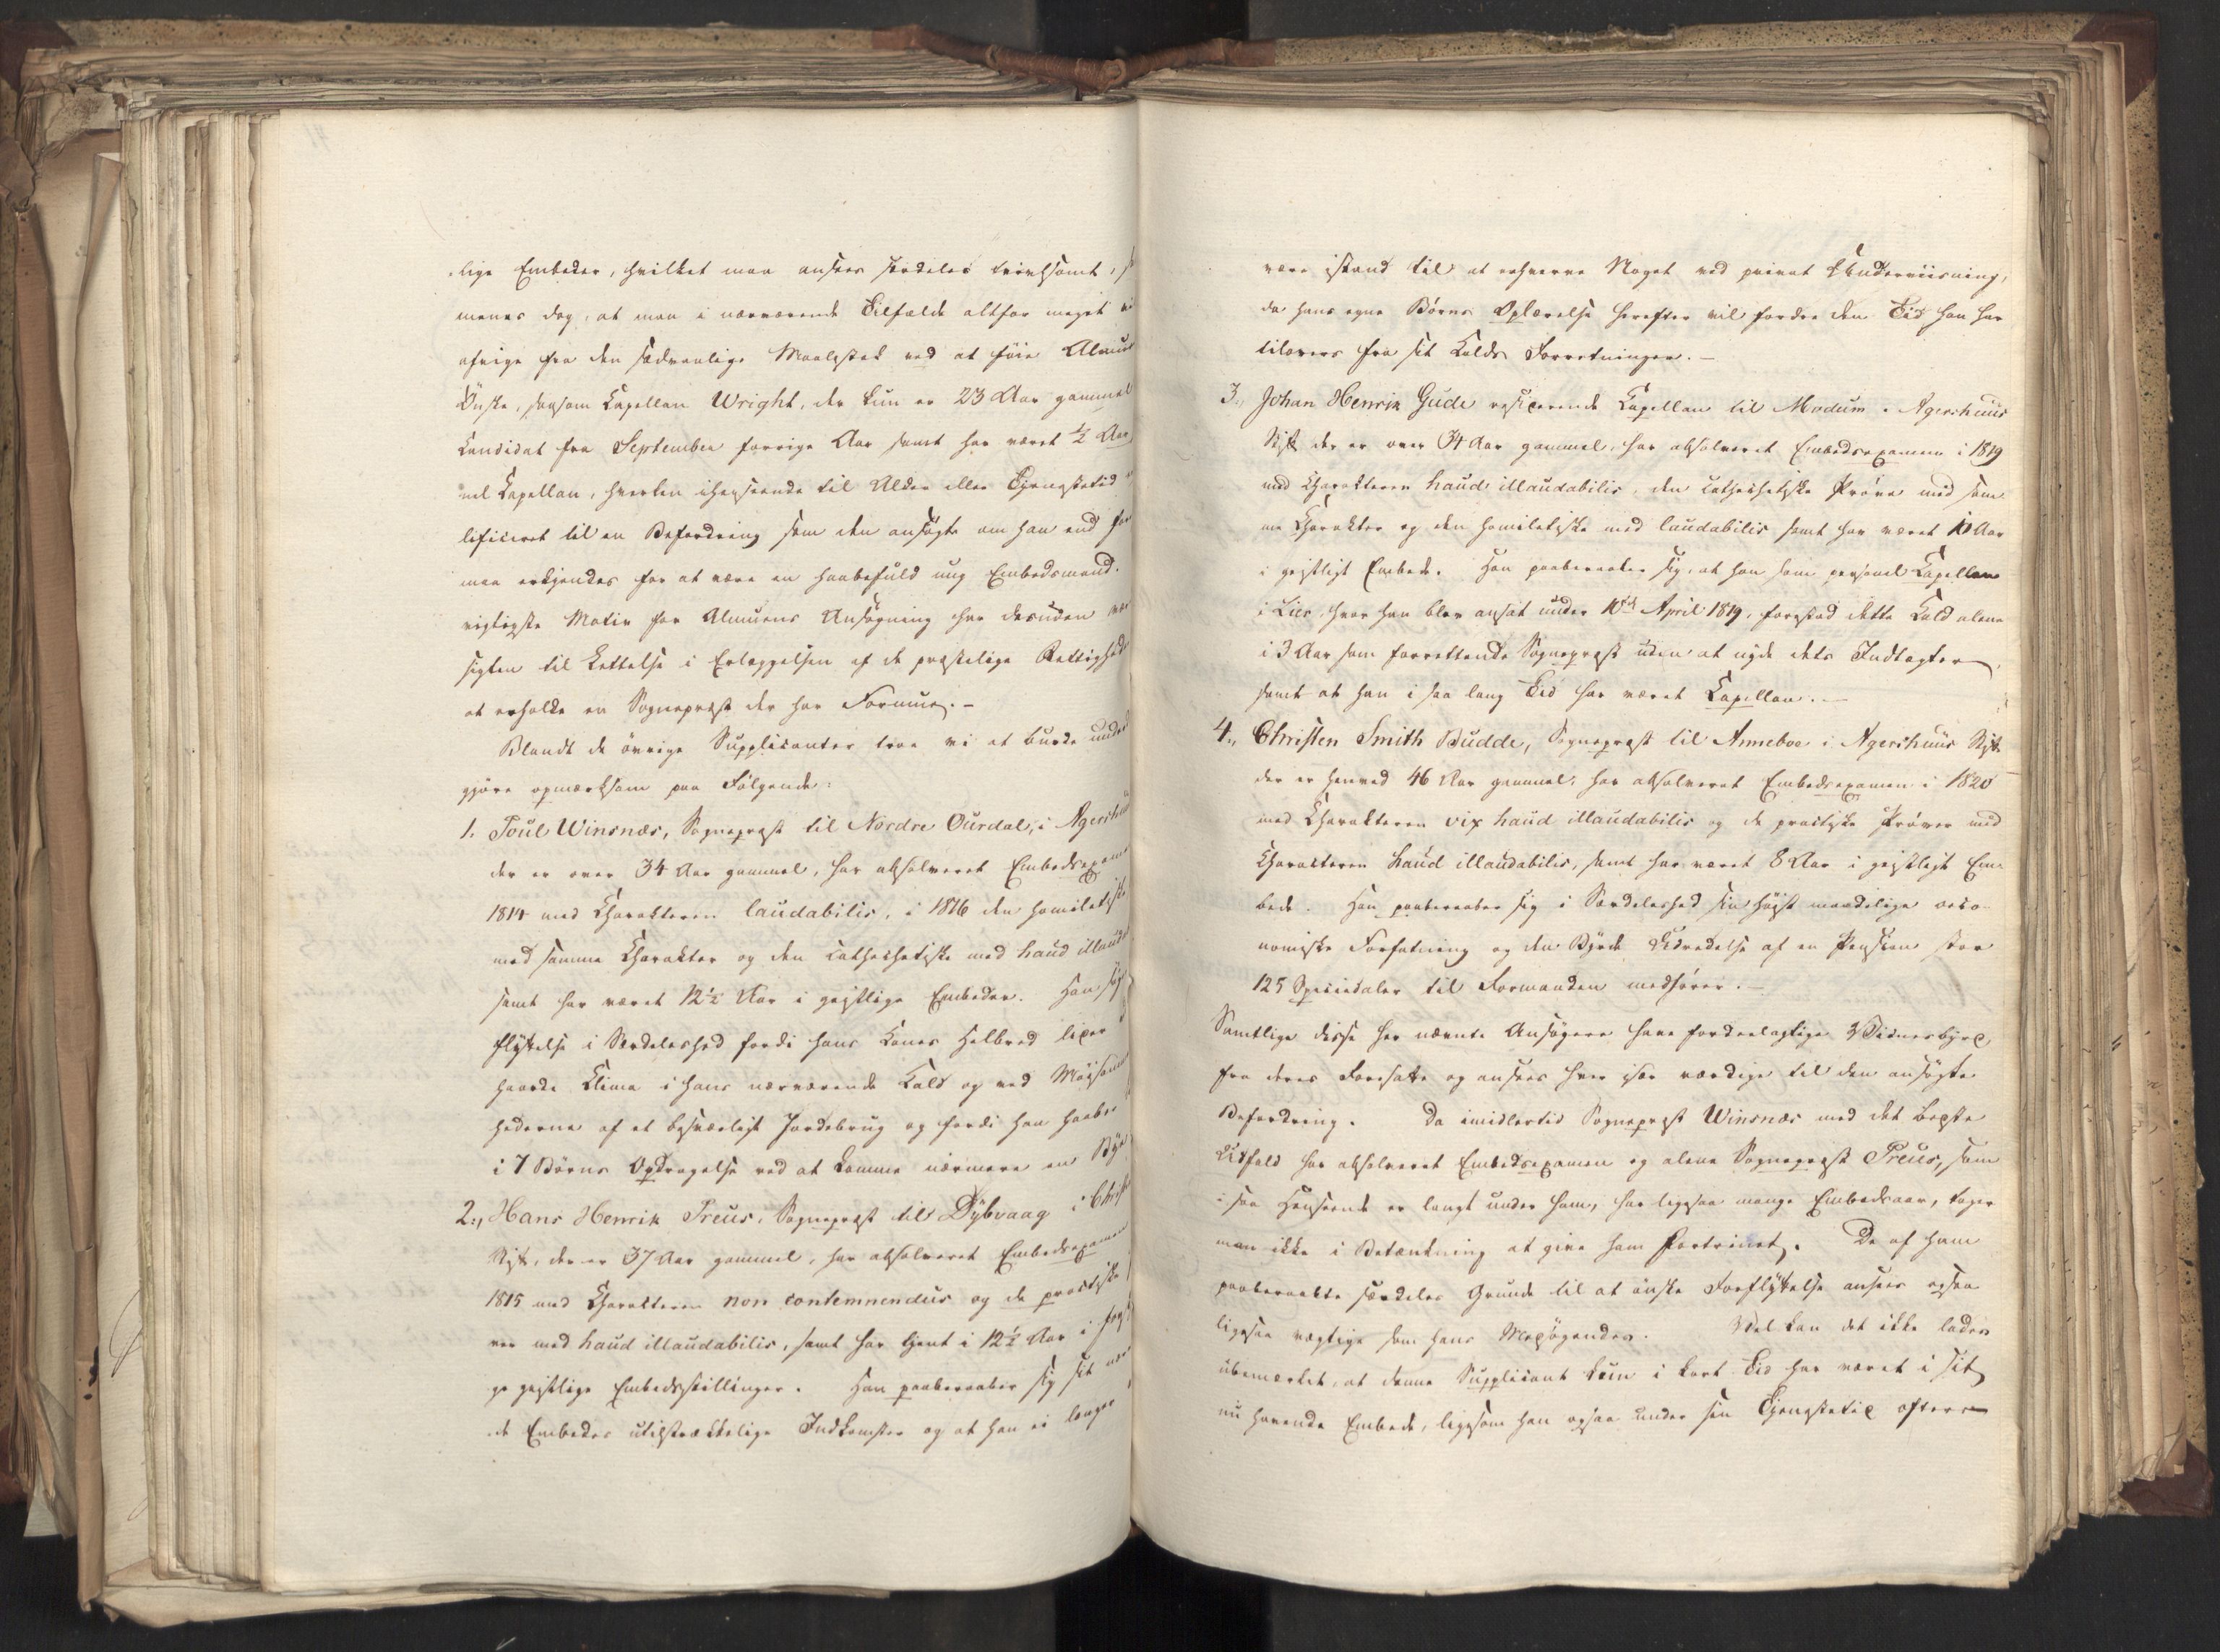 lige Embeder, hvilket maa ansees særdeles tvivlsomt,
menes dog, at man i nærværende Tilfælde altfor meget
afvige fra den sædvanlige Maalestok ved at føie Almu
Ønske, saasom Capellan Wright, der kun er 23 Aar gammel
Candidat fra September forrige Aar samt har været ½ Aar
nel Capellan, hverken ihenseende til Alder eller Tjenestetid
lificeret til en Befordring som den ansøgte om han end for
maa erkjendes for at være en haabefuld ung Embedsmand.
vigtigste Motiv for Almuens Ansøgning har desuden vær
sigten til Lettelse i Erlæggelsen af de præstelige Rettighede
at erholde en Sognepræst der har Formue.-
Blandt de övrige Supplicanter troe vi at burde under
gjøre opmærksom paa Følgende:
1. Poul Winsnæs, Sognepræst til Nordre Ourdal, i Agershuu
der er over 34 Aar gammel, har absolveret Embedsexame
1814 med Charakteren laudabilis, i 1816 den homiletiske
med samme Charakter og den cathechetiske med haud illauda
samt har været 12½ Aar i geistlige Embeder. Han søg
flyttelse i Særdeleshed fordi hans Kones Helbred lider
haarde Clima i hans nærværende Kald og ved Møisomme
hederne af et besværligt Jordebrug og fordi han haaber
i 7 Børns Opdragelse ved at komme nærmere en Bye
2., Hans Henrik Preus, Sognepræst til Dybvaag i Christ
Stift, der er 37 Aar gammel, har absolveret Embedsexamen
1815 med Charakteren non contemnendus og de practiske
ver med haud illaudabilis, samt har tjent i 12½ Aar i forskj
ge geistlige Embedsstillinger. Han paaberaaber sig sit nær
de Embedes utilstrækkelige Indkomster og at han ei længer
være istand til at erhverve Noget ved privat Underviisning,
da hans egne Børns Oplærelse herefter vil fordre den Tid han har
tilovers fra sit Kalds Forretninger.-
3., Johan Henrik Gude residerende Capellan til Modum i Agershuus
Stift der er over 34 Aar gammel, har absolveret Embedsexamen i 1819
med Charakteren haud illaudabilis, den cathechetiske Prøve med sam-
me Charakter og den homiletiske med laudabilis samt har været 10 Aar
i geistligt Embede. Han paaberaaber sig, at han som personel Capellan
i Lier, hvor han blev ansat under 10de April 1819, forestod dette Kald alene
i 3 Aar som forrettende Sognepræst uden at nyde dets Indtægter,
samt at han i saa lang Tid har været Capellan.-
4., Christen Smith Budde, Sognepræst til Anneboe i Agershuus Stift
der er henved 46 Aar gammel, har absolveret Embedsexamen i 1820
med Charakteren vix haud illaudabilis og de practiske Prøver med
Charakteren haud illaudabilis, samt har været 8 Aar i geistligt Em-
bede. Han paaberaaber sig i Særdeleshed sin høist maadelige oeco-
nomiske Forfatning og den Byrde Udredelse af en Pension stor
125 Speciedaler til Formanden medfører.-
Samtlige disse her nævnte Ansøgere have fordeelagtige Vidnesbyrd
fra deres Foresatte og ansees hver især værdige til den ansøgte
Befordring. Da imidlertid Sognepræst Winsnæs med det bedste
Udfald har absolveret Embedsexamen og alene Sognepræst Preus, som
i saa Henseende er langt under ham, har ligesaa mange Embedsaar, tager
man ikke i Betænkning at give ham Fortrinet. De af ham
paaberaabte særdeles Grunde til at ønske Forflyttelse ansees ogsaa
ligesaa vægtige som hans Medsøgendes. Vel kan det ikke lades
ubemærket, at denne Supplicant kun i kort Tid har været i sit
nu havende Embede, ligesom han ogsaa under sin Tjenestetid oftere